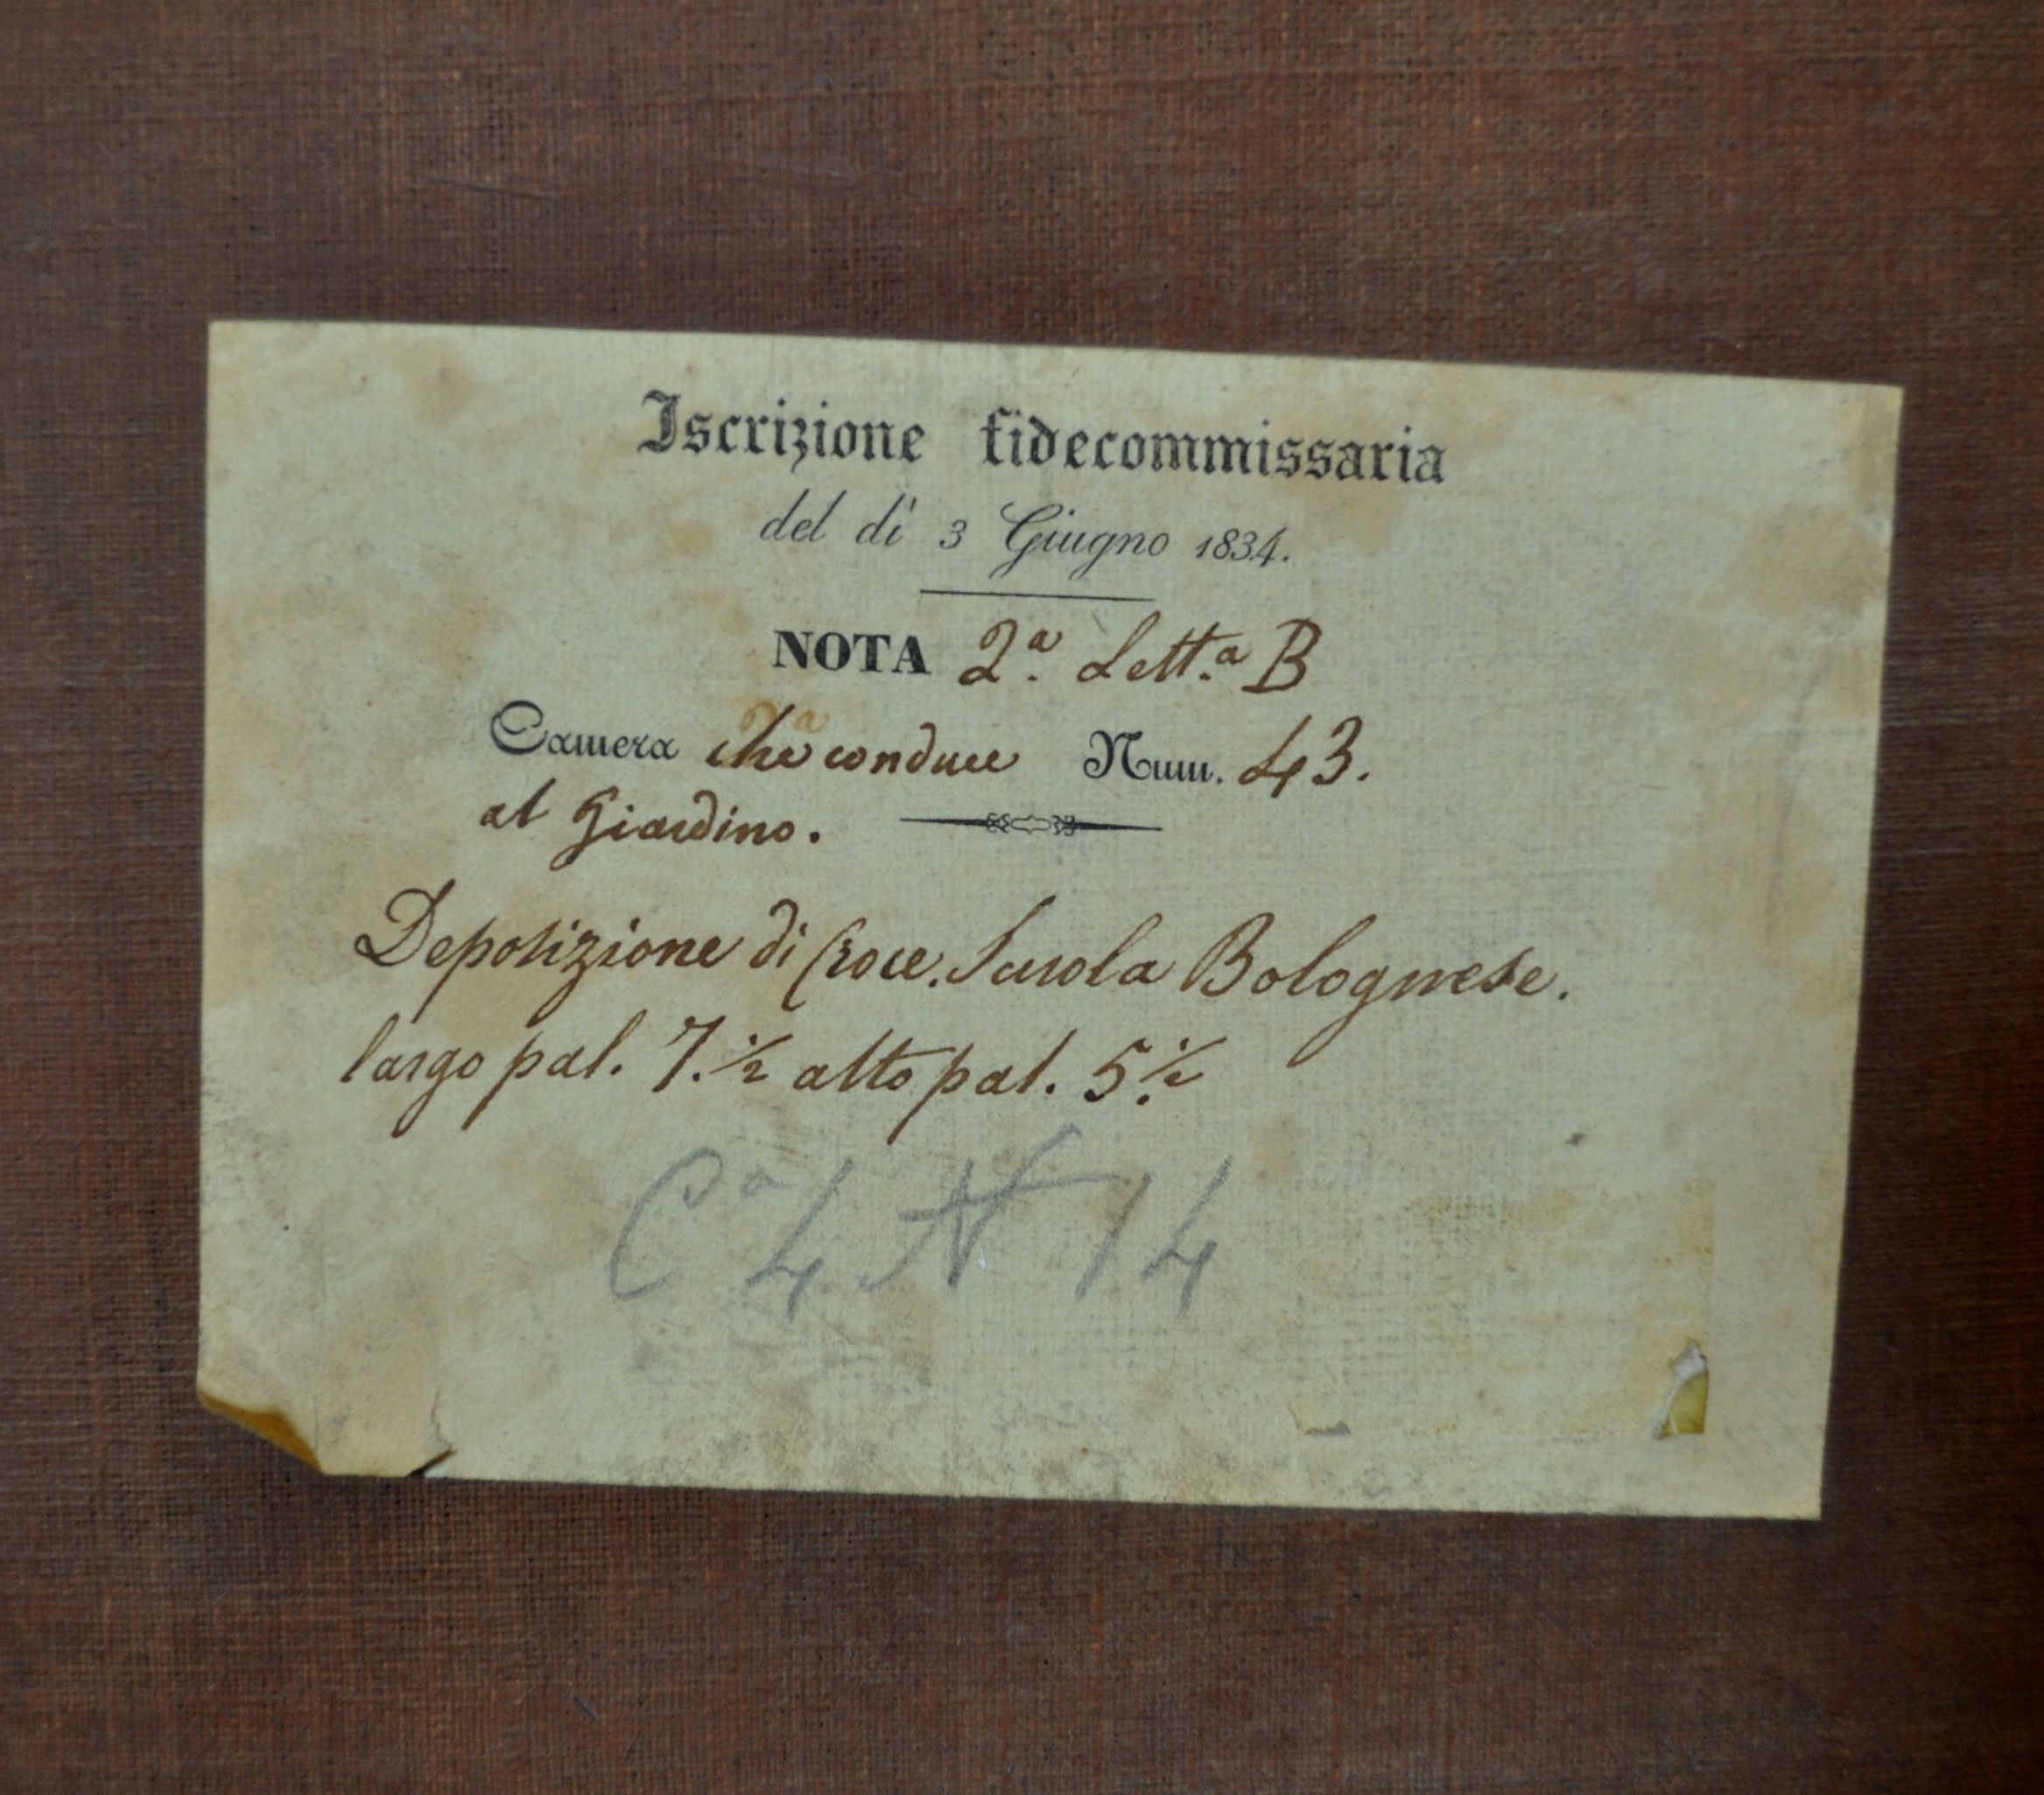 Iscrizione fidecommissaria
del dì 3 Giugno 1834.
NOTA 2.ª Lett.ª B
Camera che conduce Num. 43.
al Giardino.
Deposizione di Croce. Scuola Bolognese.
largo pal. 7.½ alto pal. 5.½
Cª 4 N 14